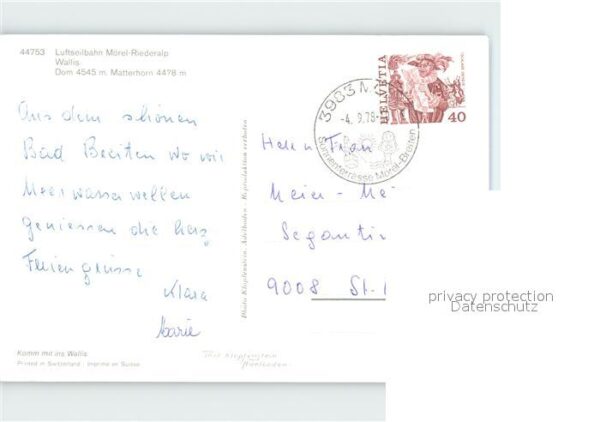 44753 Luftseilbahn Mörel-Riederalp
Wallis
Dom 4545 m. Matterhorn 4478 m
HELVETIA
40
3983 M
-4. 9.78-
Sonnenterrasse Mörel-Breiten
Aus dem schönen
Bad Breiten wo wir
Meerwasserwellen
geniessen die herz
Feriengrüsse
Klara
Herrn Frau
Meier - Me
Segantin
9008 St.
Photo Klopfenstein, Adelboden - Reproduktion verboten
Komm mit ins Wallis
Printed in Switzerland - Imprimé en Suisse
Photo Klopfenstein
Adelboden
privacy protection
Datenschutz